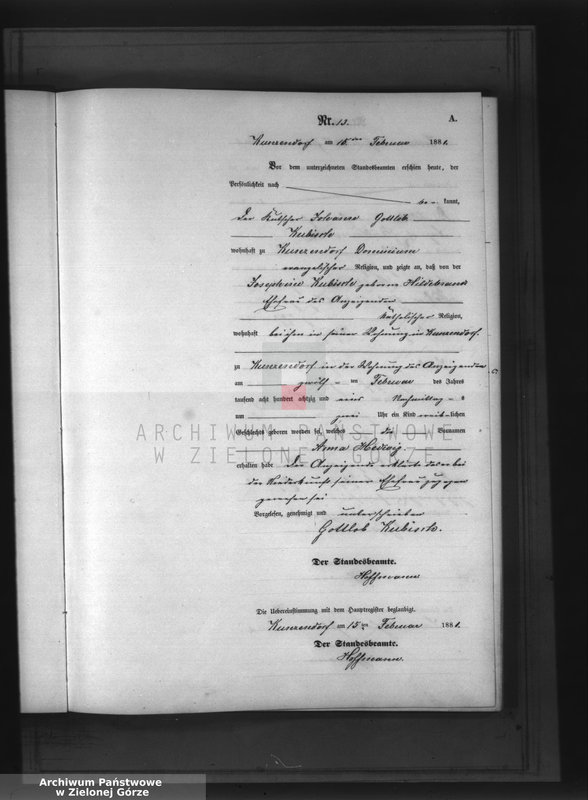 Nr. 13.
A.
Kunzendorf am 15ten Februar 1881.
Vor dem unterzeichneten Standesbeamten erschien heute, der
Persönlichkeit nach
be - kannt,
der Kutscher Johann Gottlob
Kubisch
wohnhaft zu Kunzendorf Dominium
evangelischer Religion, und zeigte an, daß von der
Kubisch geborne Hildebrand
Ehefrau des Anzeigenden
katholischer Religion,
wohnhaft bei ihm in seiner Wohnung in Kunzendorf.
zu Kunzendorf in der Wohnung des Anzeigenden
am zwölf - ten Februar des Jahres
tausend acht hundert achtzig und eins Nachmittag - s
um zwei Uhr ein Kind weib - lichen
Geschlechts geboren worden sei, welches die Vornamen
Anna Hedwig
erhalten habe. Der Anzeigende erklärte das er bei
der Niederkunft seiner Ehefrau zugegen
gewesen sei
Vorgelesen, genehmigt und unterschrieben
Gottlob Kubisch.
Der Standesbeamte.
Hoffmann
Die Uebereinstimmung mit dem Hauptregister beglaubigt.
Kunzendorf am 15ten Februar 1881.
Der Standesbeamte.
Hoffmann.
ARCHIWUM PAŃSTWOWE
W ZIELONEJ GÓRZE
Archiwum Państwowe
w Zielonej Górze